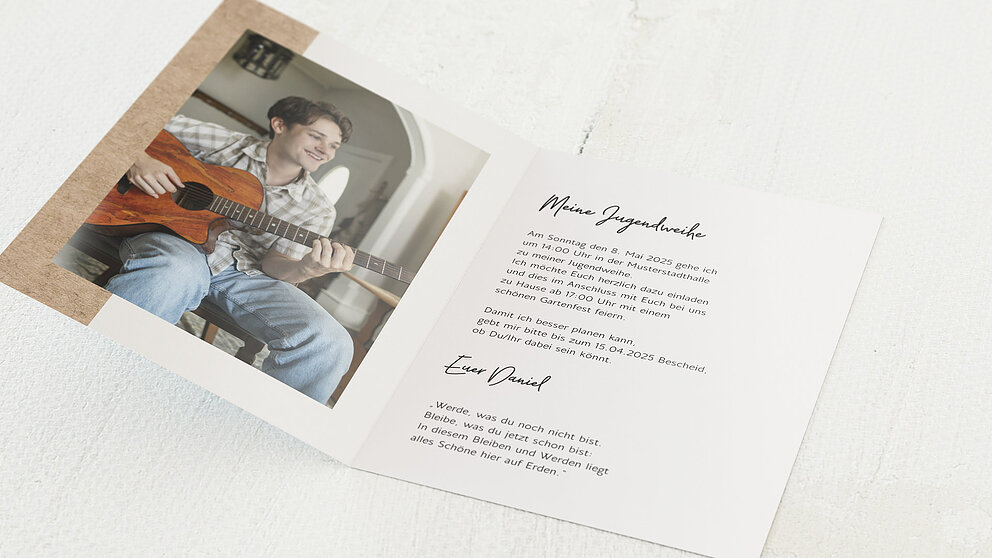 Meine Jugendweihe
Am Sonntag den 8. Mai 2025 gehe ich
um 14:00 Uhr in der Musterstadthalle
zu meiner Jugendweihe.
Ich möchte Euch herzlich dazu einladen
und dies im Anschluss mit Euch bei uns
zu Hause ab 17:00 Uhr mit einem
schönen Gartenfest feiern.
Damit ich besser planen kann,
gebt mir bitte bis zum 15.04.2025 Bescheid,
ob Du/Ihr dabei sein könnt.
Euer Daniel
„Werde, was du noch nicht bist.
Bleibe, was du jetzt schon bist:
In diesem Bleiben und Werden liegt
alles Schöne hier auf Erden.“